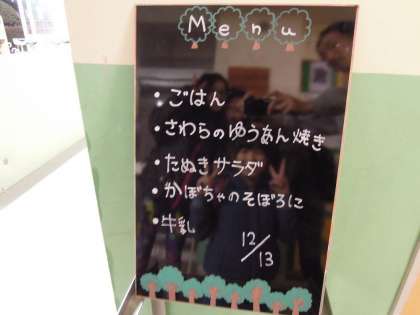 Menu
・ごはん
・さわらのゆうあん焼き
・たぬきサラダ
・かぼちゃのそぼろに
・牛乳
12/13